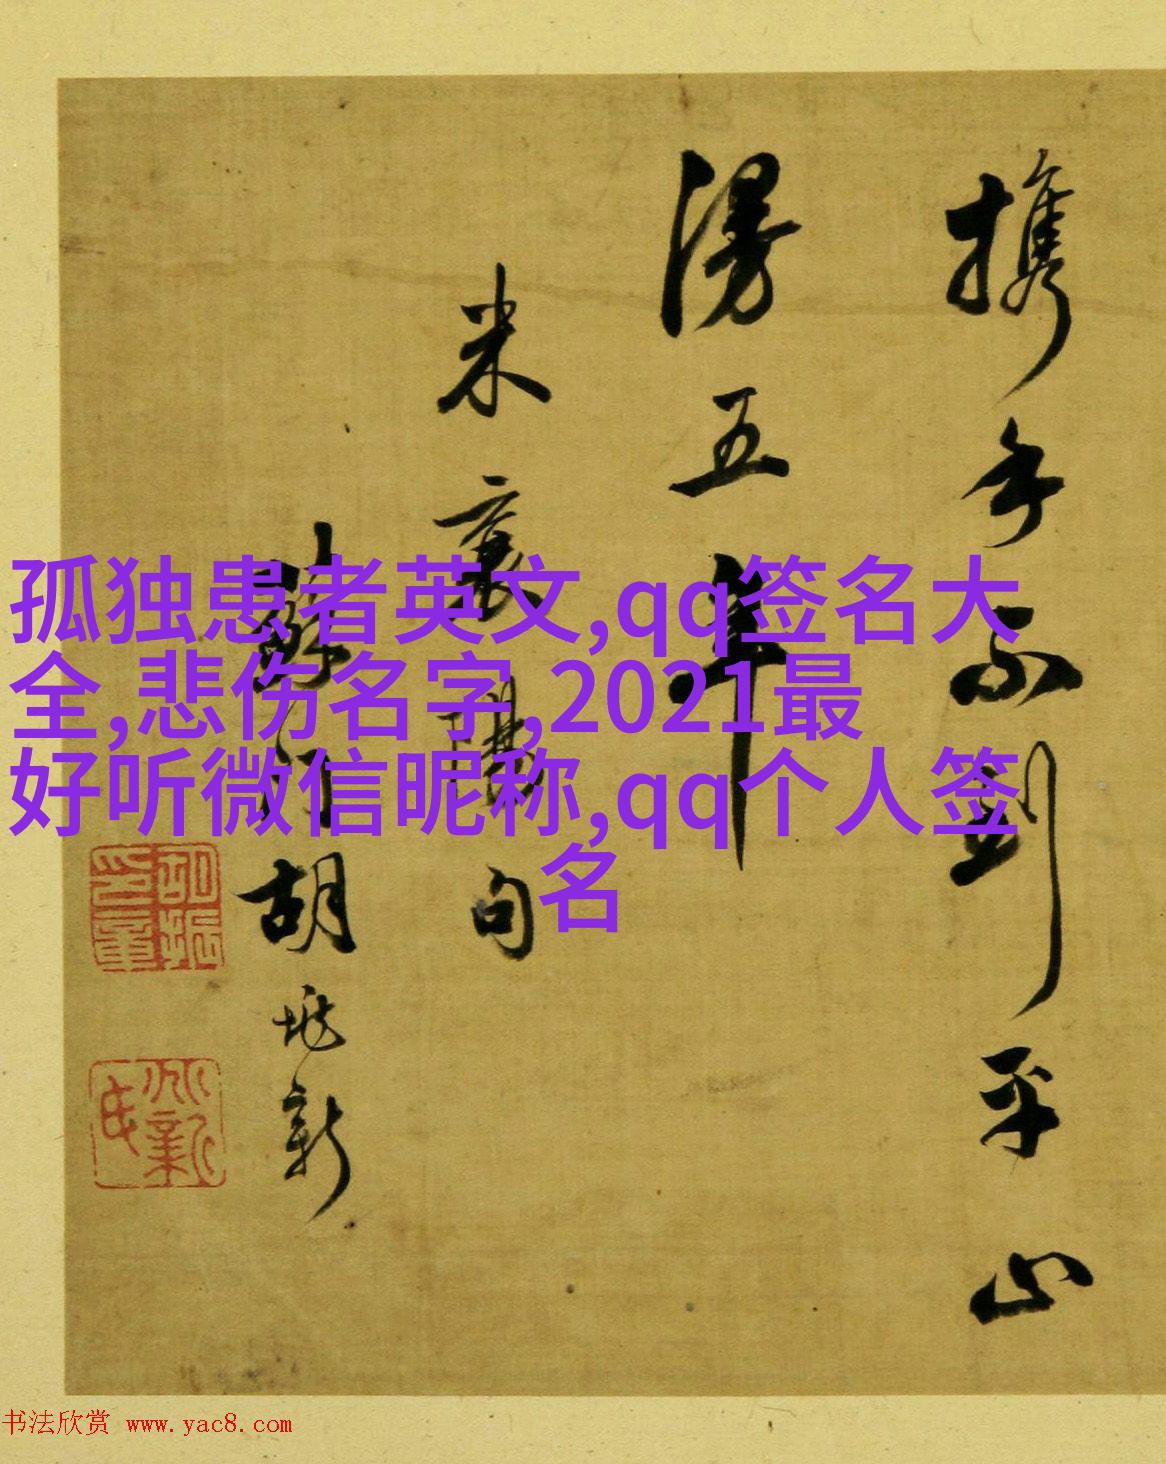 携手不到平山
漫五年
米襄陽句
胡
新
孤独患者英文,qq签名大
全,悲伤名字,2021最
好听微信昵称,qq个人签
名
书法欣赏 www.yac8.com